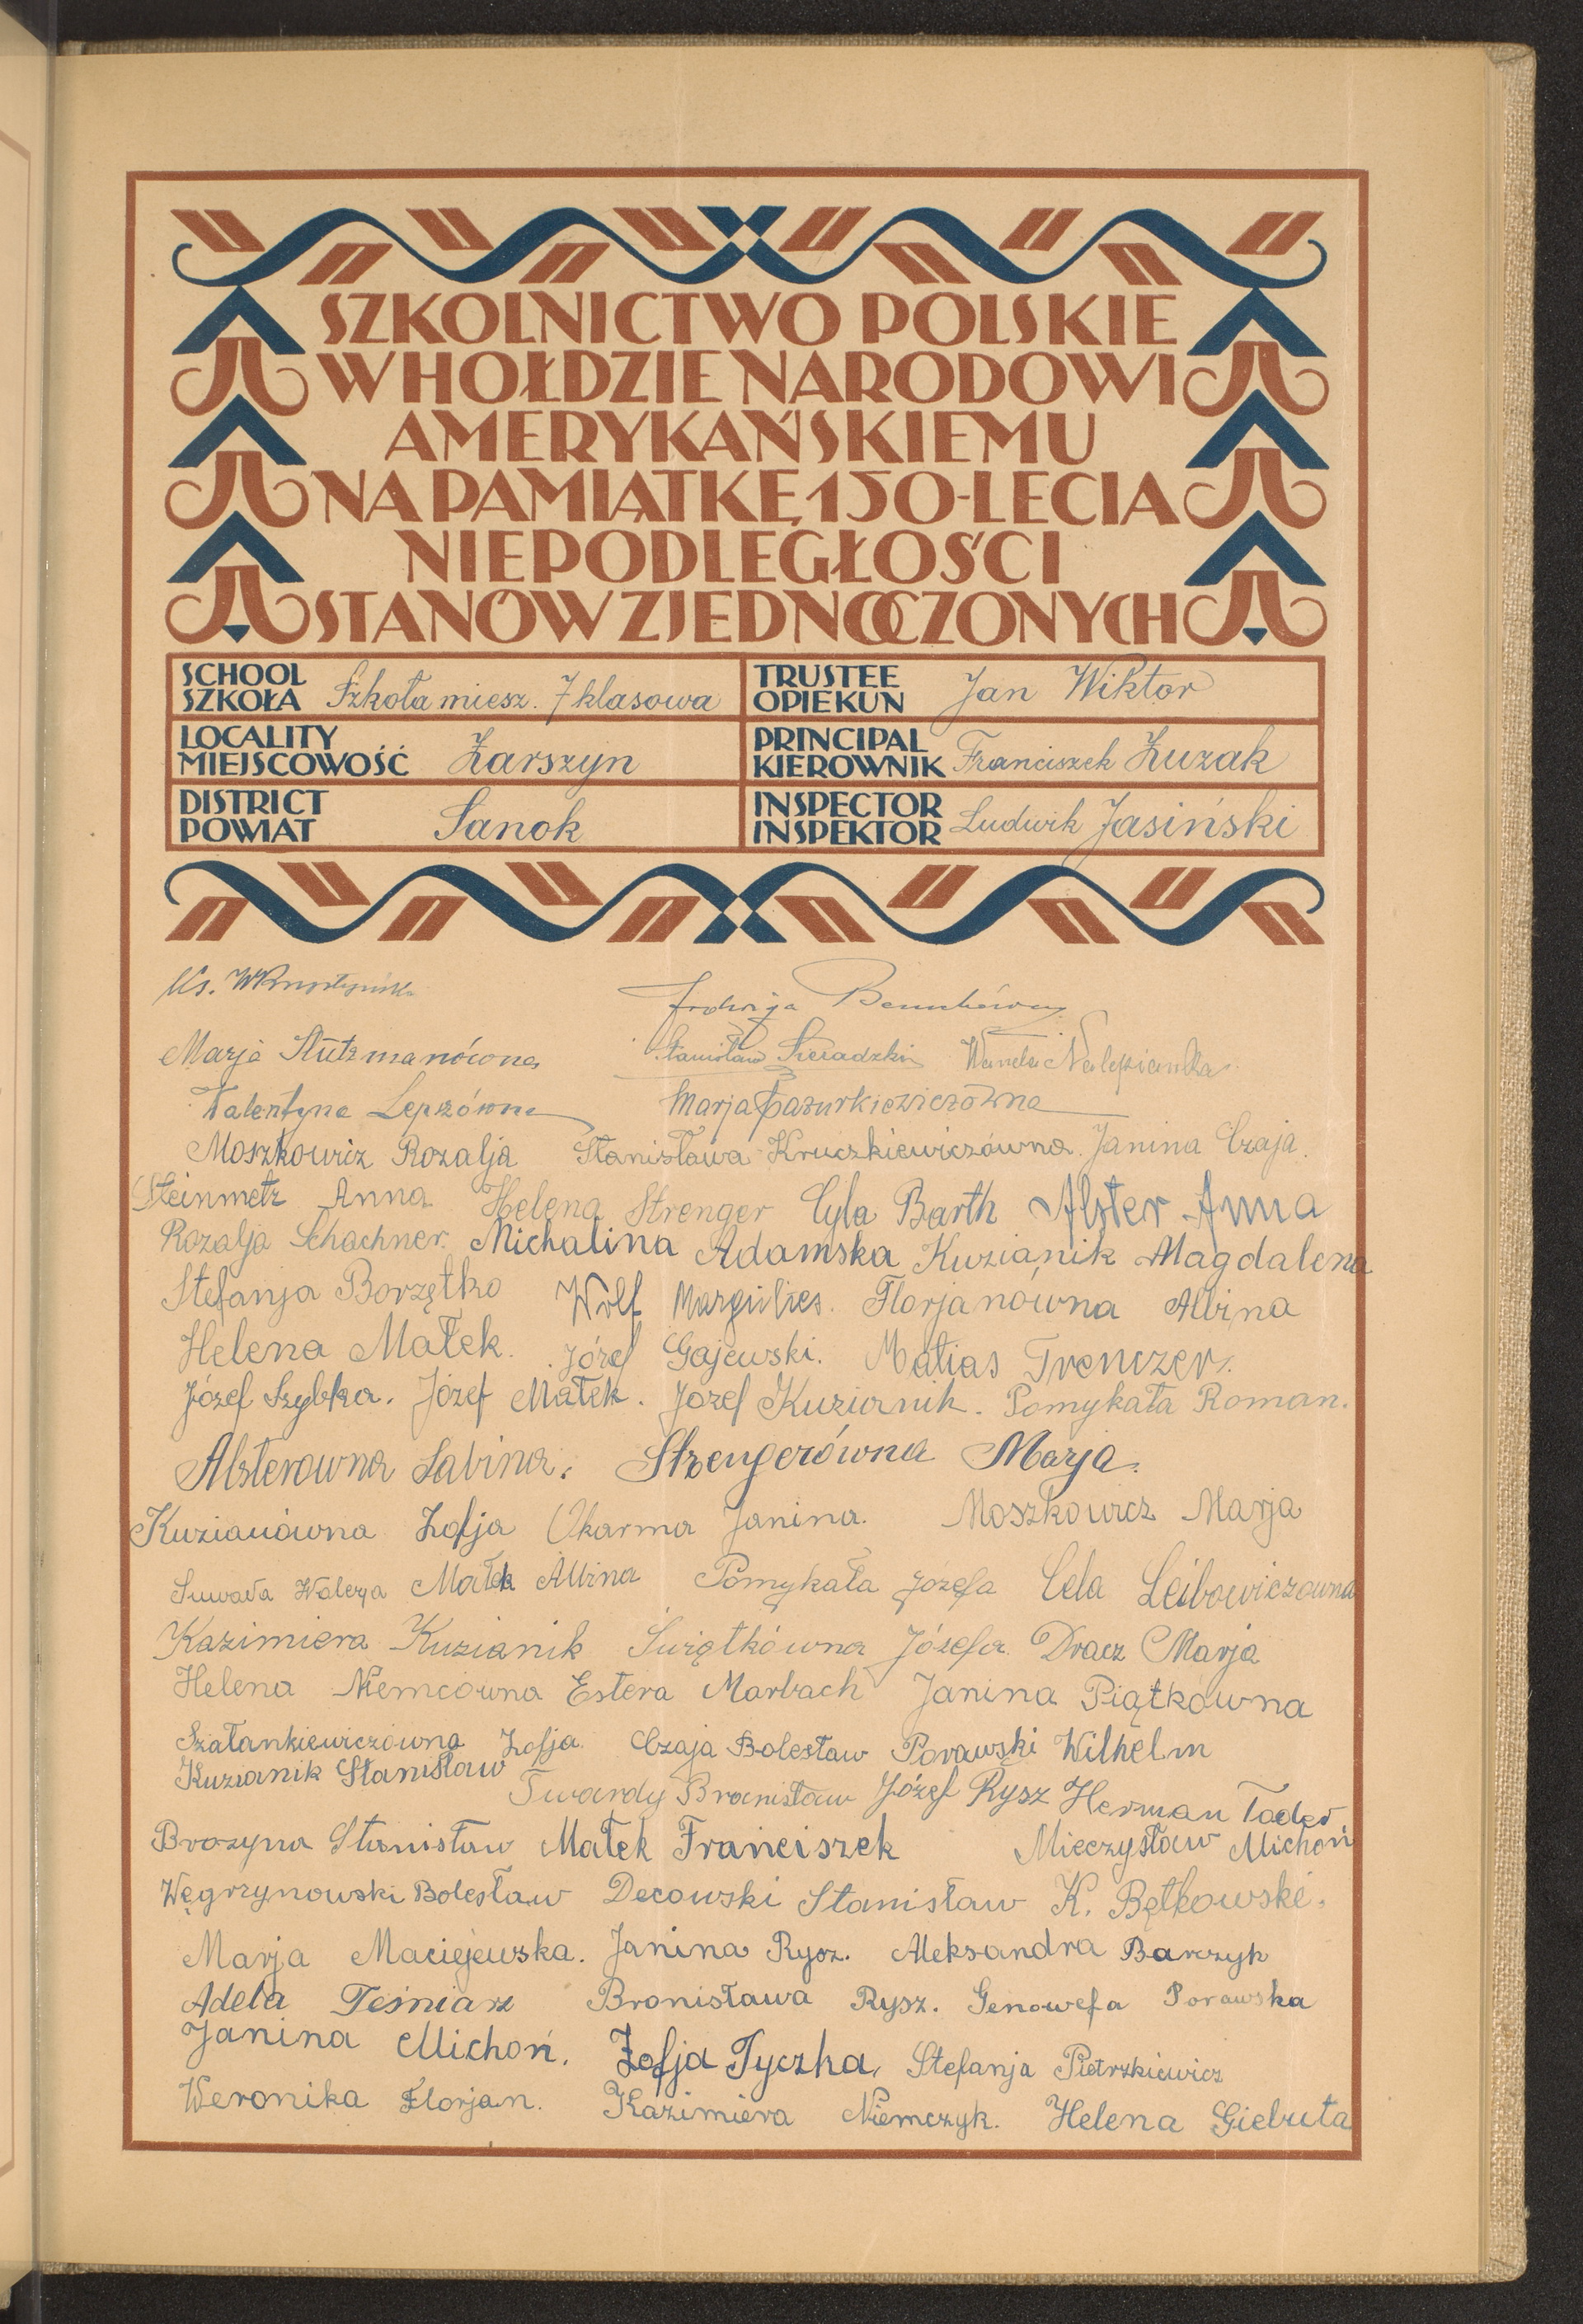 SZKOLNICTWO POLSKIE
W HOŁDZIE NARODOWI
AMERYKAŃSKIEMU
NA PAMIĄTKĘ 150-LECIA
NIEPODLEGŁOŚCI
STANÓW ZJEDNOCZONYCH
SCHOOL SZKOŁA Szkoła miesz. 7 klasowa
TRUSTEE OPIEKUN Jan Wiktor
LOCALITY MIEJSCOWOŚĆ Zarszyn
PRINCIPAL KIEROWNIK Franciszek Żuzak
DISTRICT POWIAT Sanok
INSPECTOR INSPEKTOR Ludwik Jasiński
Ks. Jadwiga
Marja Stanisław Sieradzki Wanda Nalepianka
Walentyna Lepszówna Marja
Moszkowicz Rozalja Stanisława Kruczkiewiczówna. Janina Czaja.
Steinmetz Anna Helena Strenger Cyla Barth Alster Anna
Rozalja Schachner. Michalina Adamska Kuzianik Magdalena
Stefanja Borzętko Wolf Margulies. Florjanówna Albina
Helena Małek. Józef Gajewski. Matias Trenczer.
Józef Szybka. Józef Małek. Józef Kuzianik. Pomykała Roman.
Alsterowna Sabina. Strengerówna Marja.
Kuzianówna Zofja Okarma Janina. Moszkowicz Marja
Suwała Walerja Małek Albina Pomykała Józefa Cela Leibowiczowna
Kazimiera Kuzianik Świątkówna Józefa Dracz Marja
Helena Niemcówna Estera Marbach Janina Piątkówna
Szałankiewiczówna Zofja. Czaja Bolesław Porawski Wilhelm
Kuzianik Stanisław Twardy Bronisław Józef Rysz Herman
Brozyna Stanisław Małek Franciszek Mieczysław Michoń
Węgrzynowski Bolesław Decowski Stanisław K. Bętkowski.
Marja Maciejewska. Janina Rysz. Aleksandra Barczyk
Adela Teśniarz Bronisława Rysz. Genowefa Porawska
Janina Michoń. Zofja Tyczka, Stefanja Pietrzkiewicz
Weronika Florjan. Kazimiera Niemczyk. Helena Giebuta